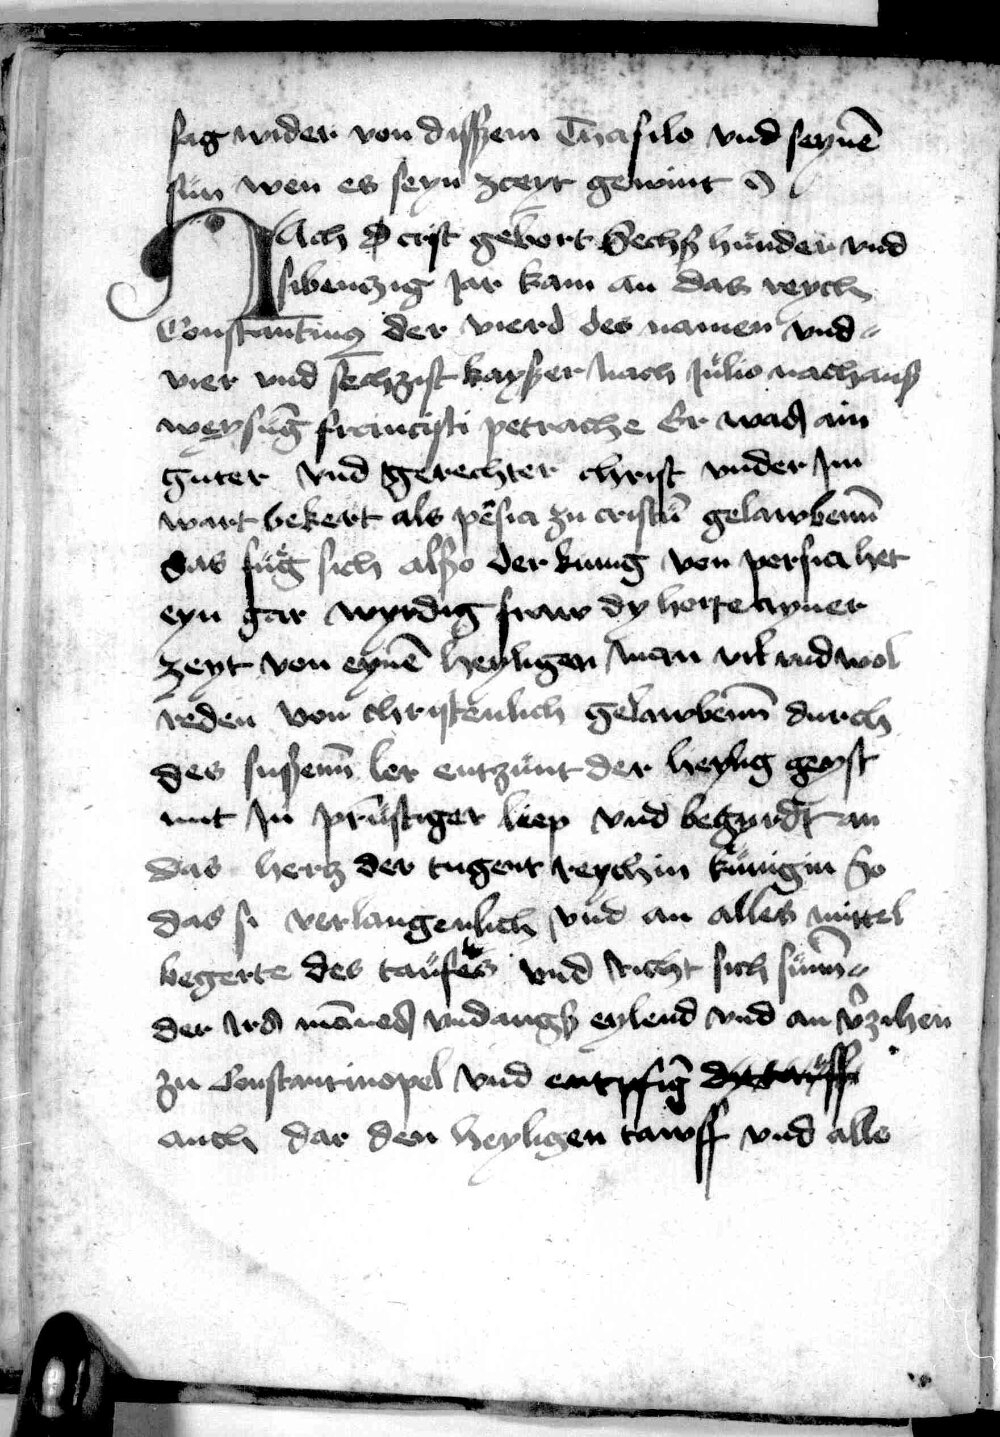 sag wider von disszem Thasilo vnd seynē
sün wen es seyn zceyt gewint
Nach d crist gebort Sechs hünder vnd
sibenczig jar kam an das reych
Constantinꝰ der vierd des namen vnd
vier vnd sechzist kaysser nach Jülio nach auß
weysūg francisti petrache Er waß ain
guter vnd gerechter christ vnder jm
wart bekert als pēsia zu cristē gelawbenn̄
das füg sich also der kunig von persia het
eyn gar wyrdig fraw dy horte ayner
zeyt von eynē heyligen man vil vnd wol
reden von christenlich gelawbenn̄ durch
des sussenn̄ ler entzünt der heylig geyst
mit jn prūstiger liep vnd begyrdt an
das hertz der tugent reychin künigin So
das si verlangenlich vnd an alles mittel
begerte des taüfes vnd richt sich sünn̄
der irß māneß vndangß eylend vnd an v̄zihen
zu Constantinopel vnd entpfīg
auch dar den heyligen tawff vnd alle